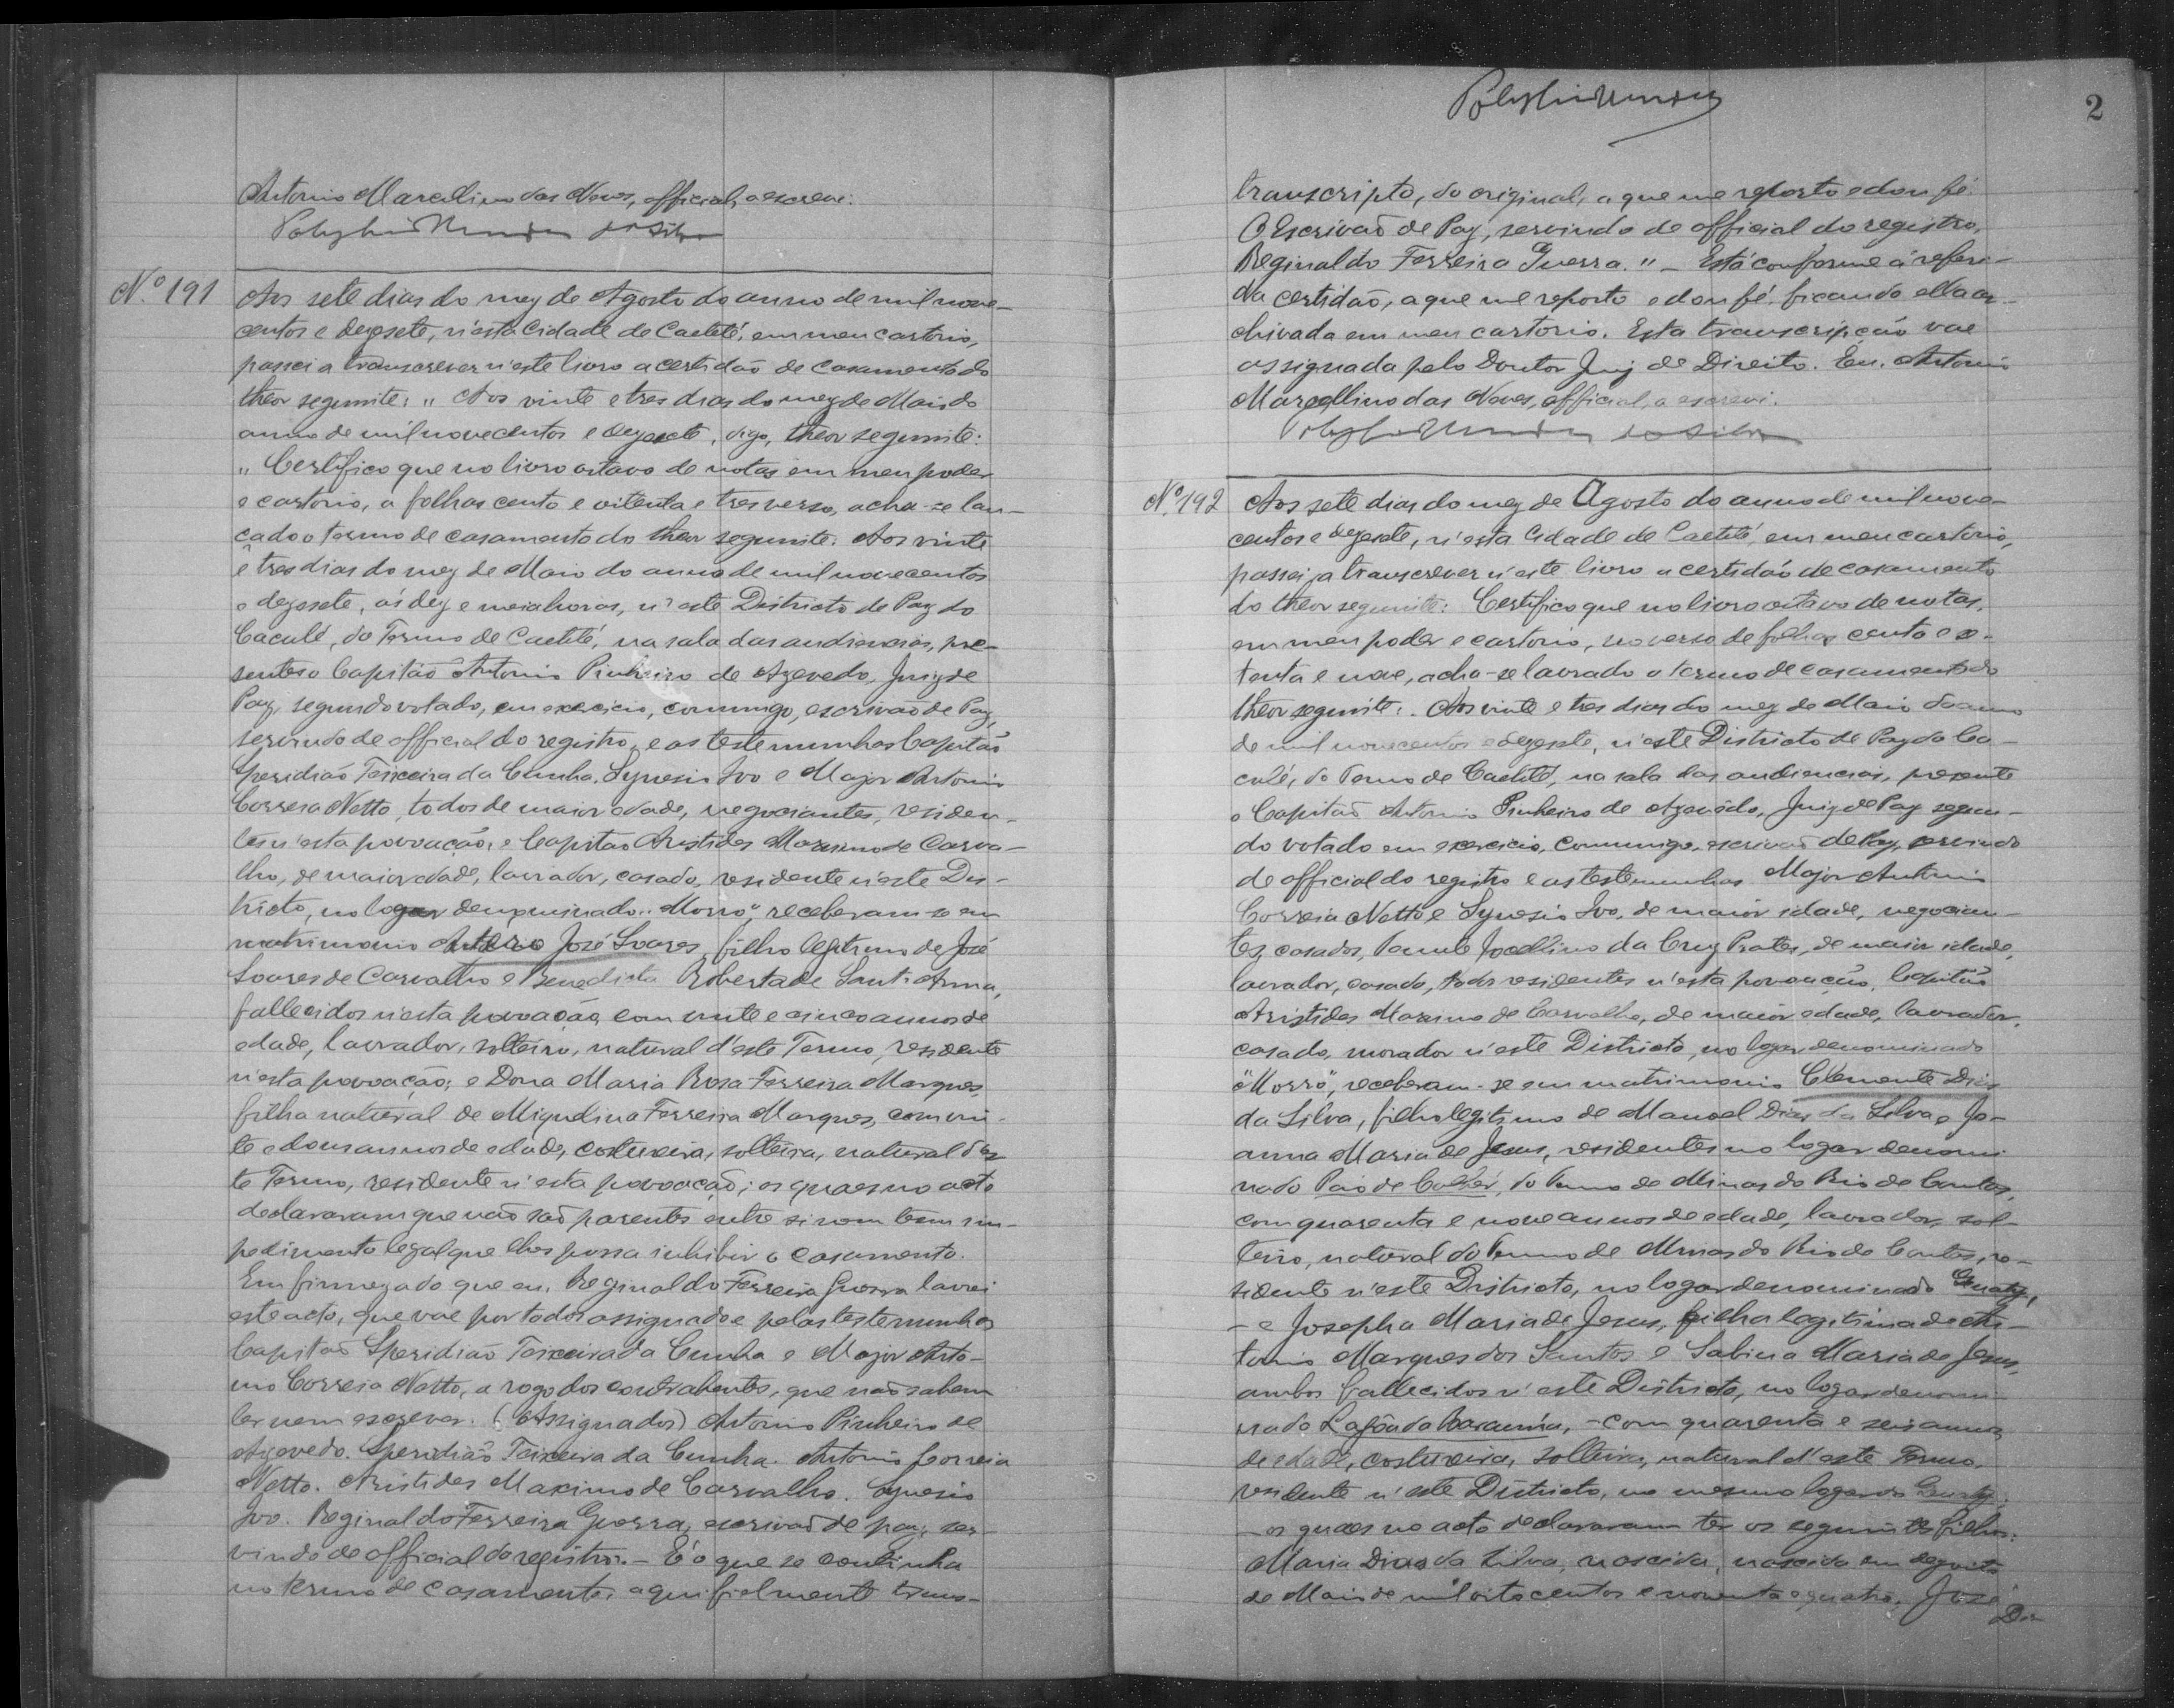 Antonio Marcellino das Neves, official, o escrevi.
Nº 191
Aos sete dias do mez de Agosto do anno de mil nove-
centos e dezesete, n'esta Cidade de Caeteté, em meu cartorio,
passei a transcrever n'este livro a certidão de casamento do
theor seguinte: " Aos vinte e tres dias do mez de Maio do
anno de mil novecentos e dezesete, digo, theor seguinte:
" Certifico que no livro oitavo de notas em meu poder
e cartorio, a folhas cento e oitenta e tres verso, acha-se lan-
çado o termo de casamento do theor seguinte. Aos vinte
e tres dias do mez de Maio do anno de mil novecentos
e dezesete, ás dez e meia horas, n'este Districto de Paz do
Caculé, do Termo de Caeteté, na sala das audiencias, pre-
sentes o Capitão Antonio Pinheiro de Azevedo, Juiz de
Paz, segundo votado, em exercicio, commigo, escrivão de Paz,
servindo de official do registro, e as testemunhas Capitão
Speridião Teixeira da Cunha, Synesio Ivo e Major Antonio
Correia Netto, todos de maior edade, negociantes, residen-
tes n'esta povoação, e Capitão Aristides Maximo de Carva-
lho, de maior edade, lavrador, casado, residente n'este Dis-
tricto, no logar denominado "Morro", receberam-se em
matrimonio Anterio José Soares, filho legitimo de José
Soares de Carvalho e Benedicta Roberta de Sant'Anna,
fallecidos n'esta povoação, com vinte e cinco annos de
edade, lavrador, solteiro, natural d'este Termo, residente
n'esta povoação; e Dona Maria Rosa Ferreira Marques,
filha natural de Miguelina Ferreira Marques, com vin-
te e dous annos de edade, costureira, solteira, natural d'es
te Termo, residente n'esta povoação; os quaes no acto
declararam que não são parentes entre si nem teem im-
pedimento legal que lhes possa inhibir o casamento.
Em firmeza do que eu, Reginaldo Ferreira Guerra lavrei
este acto, que vae por todos assignado e pelas testemunhas
Capitão Speridião Teixeira da Cunha e Major Anto-
nio Correia Netto, a rogo dos contrahentes, que não sabem
ler nem escrever. (Assignados) Antonio Pinheiro de
Azevedo. Speridião Teixeira da Cunha. Antonio Correia
Netto. Aristides Maximo de Carvalho. Synesio
Ivo. Reginaldo Ferreira Guerra, escrivão de paz, ser-
vindo de official do registro. - É o que se continha
no termo de casamento, aqui fielmente trans-
2
transcripto, do original, a que me reporto e dou fé.
O Escrivão de Paz, servindo de official do registro,
Reginaldo Ferreira Guerra." - Está conforme á referi-
da certidão, a que me reporto e dou fé, ficando ella ar-
chivada em meu cartorio. Esta transcripção vae
assignada pelo Doutor Juiz de Direito. Eu, Antonio
Marcellino das Neves, official, o escrevi.
Nº 192
Aos sete dias do mez de Agosto do anno de mil nove-
centos e dezesete, n'esta Cidade de Caeteté, em meu cartorio,
passei a transcrever n'este livro a certidão de casamento
do theor seguinte: Certifico que no livro oitavo de notas,
em meu poder e cartorio, no verso de folhas cento e oi-
tenta e nove, acha-se lavrado o termo de casamento do
theor seguinte: Aos vinte e tres dias do mez de Maio do anno
de mil novecentos e dezesete, n'este Districto de Paz do Ca-
culé, do Termo de Caeteté, na sala das audiencias, presente
o Capitão Antonio Pinheiro de Azevêdo, Juiz de Paz segun-
do votado em exercicio, commigo, escrivão de Paz, servindo
de official do registro e as testemunhas Major Antonio
Correia Netto e Synesio Ivo, de maior idade, negocian-
tes, casados, Jocellino da Cruz Prates, de maior idade,
lavrador, casado, todos residentes n'esta povoação, Capitão
Aristides Maximo de Carvalho, de maior edade, lavrador,
casado, morador n'este Districto, no logar denominado
"Morro", receberam-se em matrimonio Clemente Dias
da Silva, filho legitimo de Manoel Dias da Silva e Jo-
anna Maria de Jesus, residentes no logar denomi
nado Páo de Colher, do Termo de Minas do Rio de Contas,
com quarenta e nove annos de edade, lavrador, sol-
teiro, natural do Termo de Minas do Rio de Contas, re-
sidente n'este Districto, no logar denominado
- e Josepha Maria de Jesus, filha legitima de An-
tonio Marques dos Santos e Sabina Maria de Jesus,
ambos fallecidos n'este Districto, no logar denomi-
nado Lagôa da Barauna, - com quarenta e seis annos
de edade, costureira, solteira, natural d'este Termo,
residente n'este Districto, no mesmo logar do
- os quaes no acto declararam ter os seguintes filhos:
Maria Dias da Silva, nascida, nascida em dezoito
de Maio de mil oitocentos e noventa e quatro, José
Dias